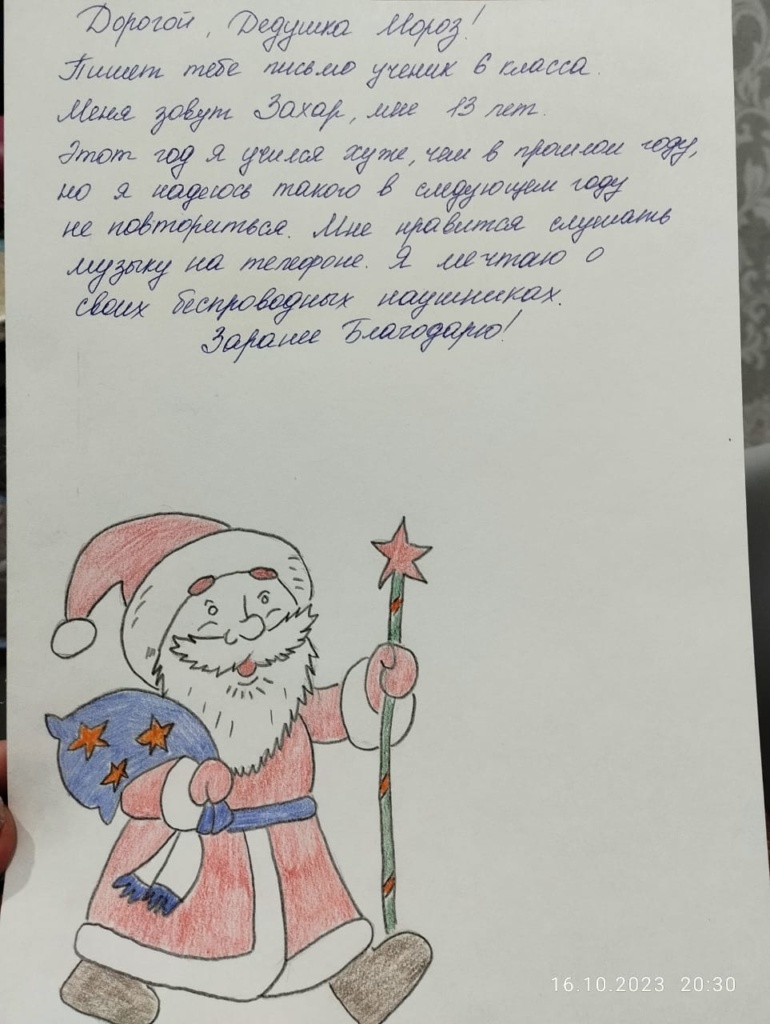 Дорогой, Дедушка Мороз!
Пишет тебе письмо ученик 6 класса.
Меня зовут Захар, мне 13 лет.
Этот год я учился хуже, чем в прошлом году,
но я надеюсь такого в следующем году
не повториться. Мне нравится слушать
музыку на телефоне. Я мечтаю о
своих беспроводных наушниках.
Заранее Благодарю!
16.10.2023 20:30